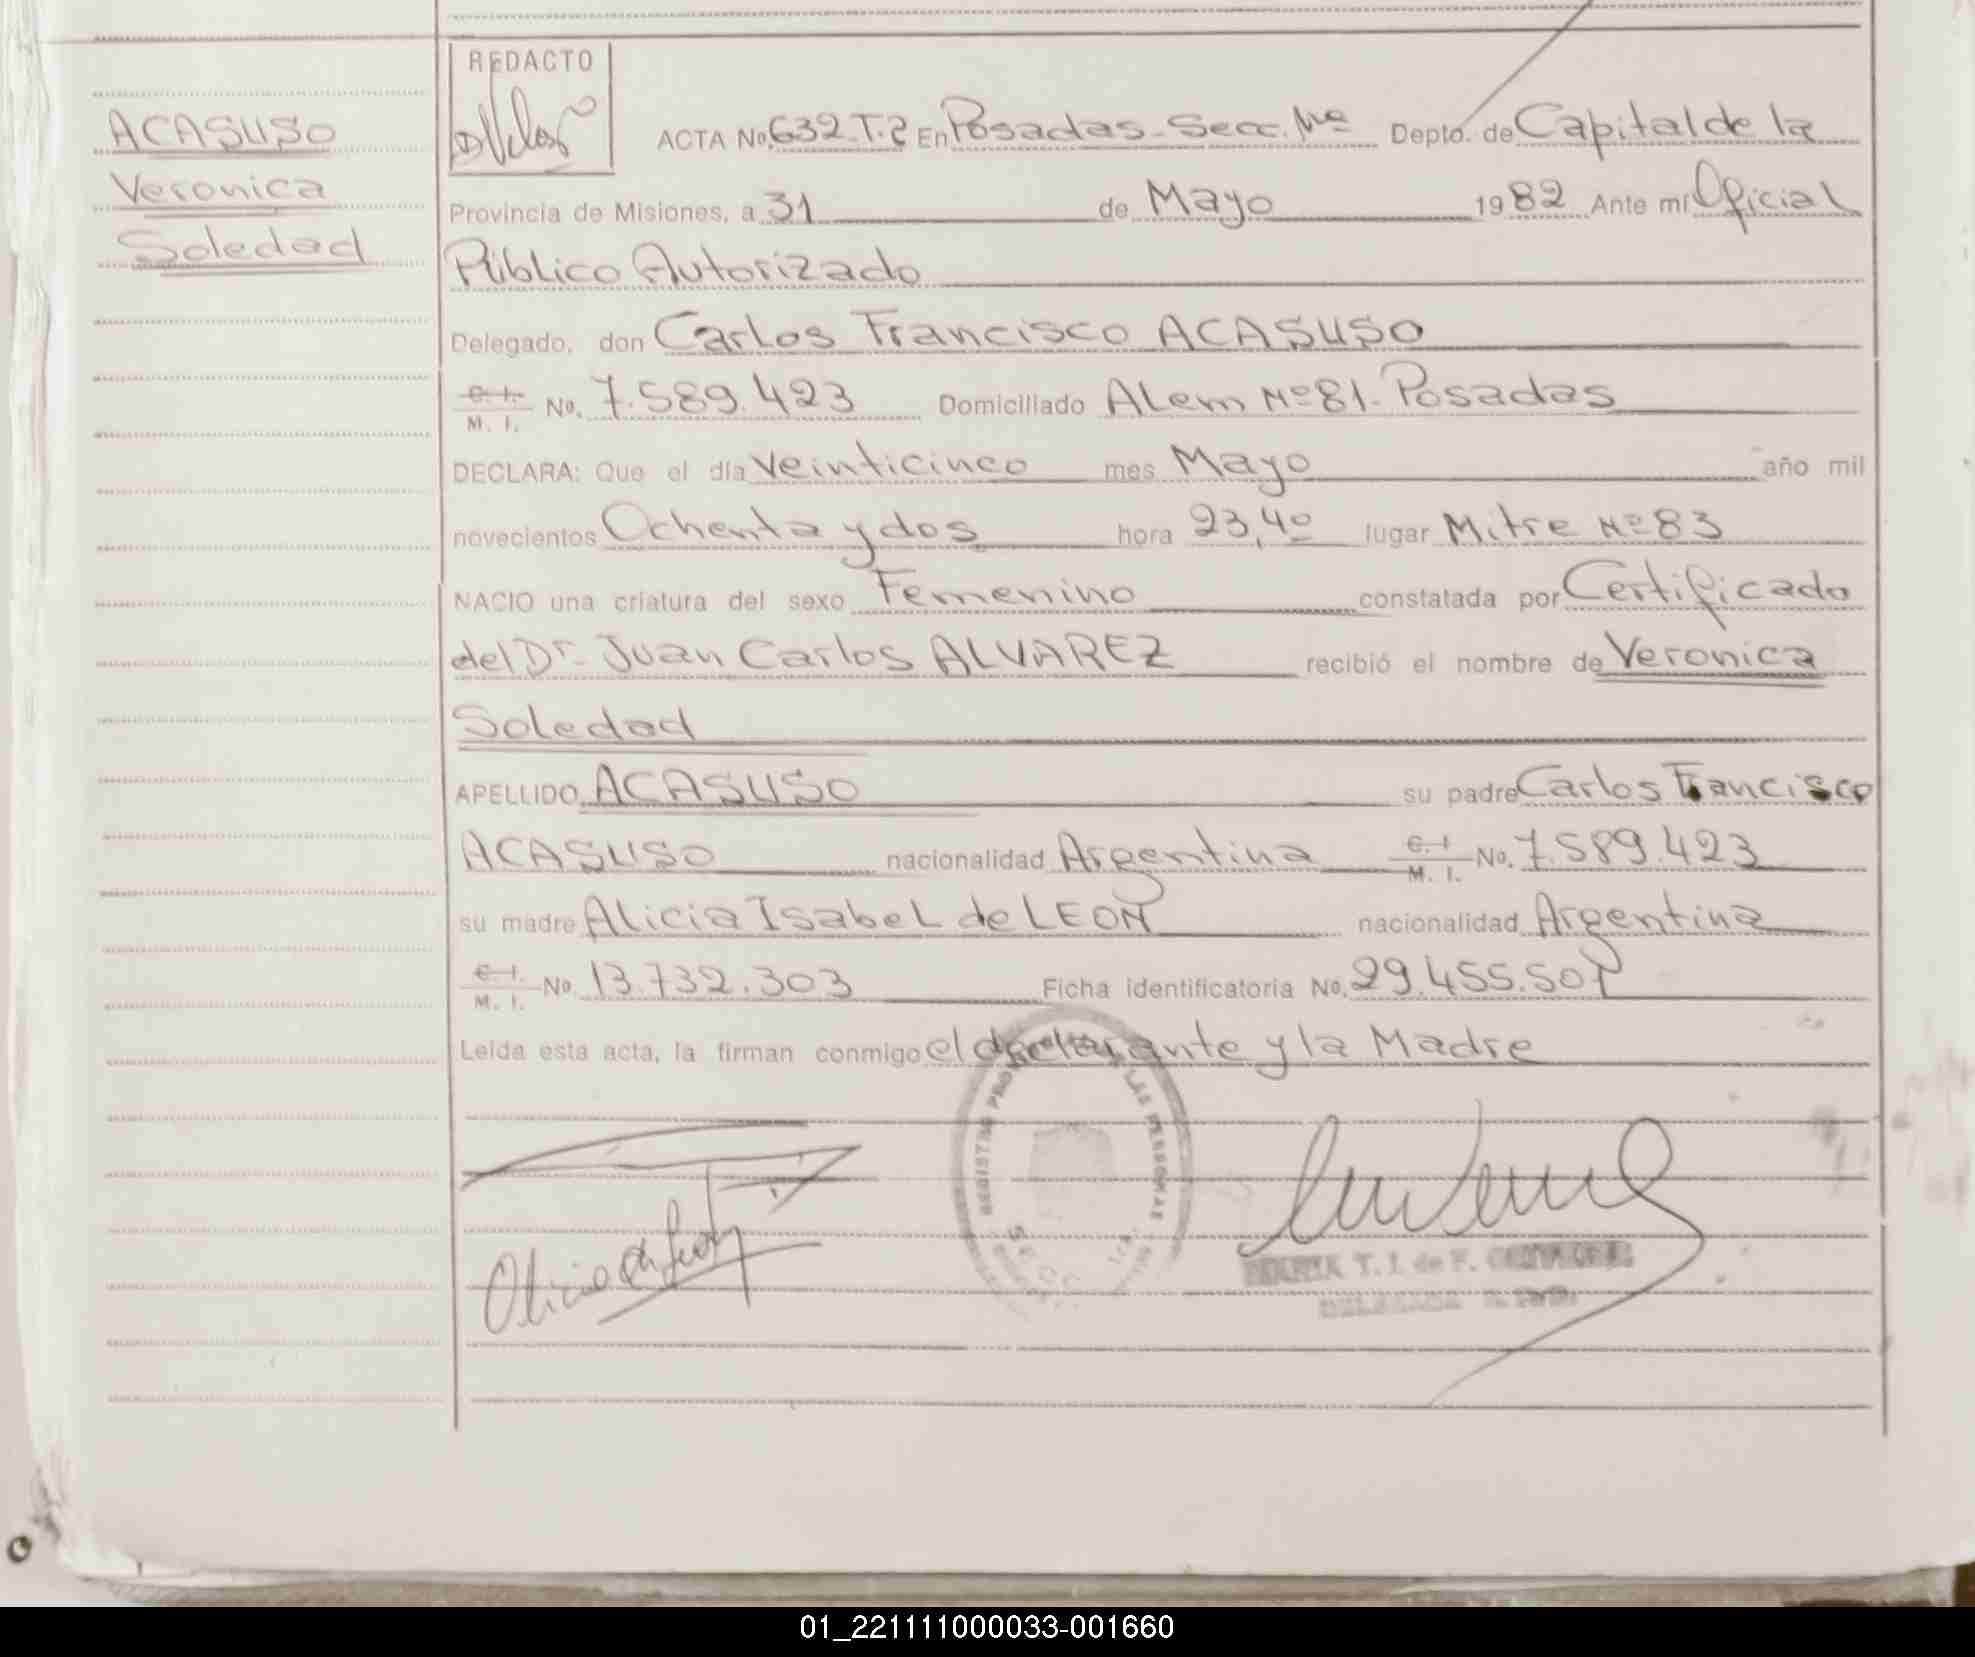 REDACTO
ACASUSO
Veronica
Soledad
ACTA No. 632 T.2 En Posadas - Secc. Mª Depto. de Capital de la
Provincia de Misiones, a 31 de Mayo 1982 Ante mí Oficial
Público Autorizado
Delegado, don Carlos Francisco ACASUSO
C. I. / M. I. No. 7.589.423 Domiciliado Alem Nº 81 - Posadas
DECLARA: Que el día Veinticinco mes Mayo año mil
novecientos Ochenta y dos hora 23,40 lugar Mitre Nº 83
NACIO una criatura del sexo Femenino constatada por Certificado
del Dr. Juan Carlos ALVAREZ recibió el nombre de Veronica
Soledad
APELLIDO ACASUSO su padre Carlos Francisco
ACASUSO nacionalidad Argentina C. I. / M. I. No. 7.589.423
su madre Alicia Isabel de LEON nacionalidad Argentina
C. I. / M. I. No. 13.732.303 Ficha identificatoria No. 29.455.501
Leída esta acta, la firman conmigo el declarante y la Madre
REGISTRO LAS PERSONAS
SECC
T. I. de F.
01_221111000033-001660